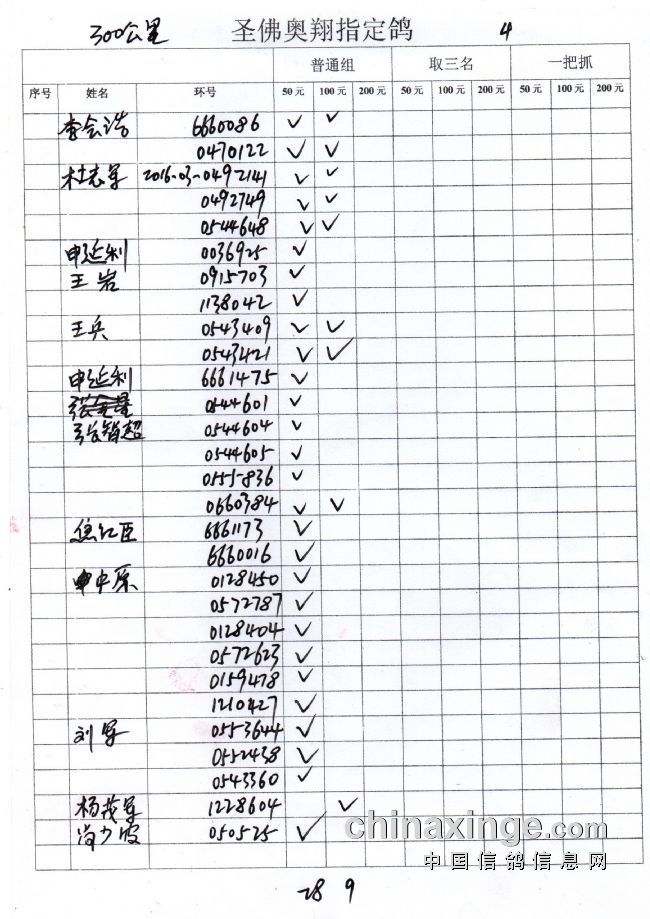 300公里 圣佛奥翔指定鸽 4
普通组 取三名 一把抓
序号 姓名 环号 50元 100元 200元 50元 100元 200元 50元 100元 200元
李会浩 6660086 ✓ ✓
0470122 ✓ ✓
杜志军 2016-03-0492141 ✓ ✓
0492749 ✓ ✓
0544648 ✓ ✓
申延利 0036925 ✓
王岩 0915703 ✓
1138042 ✓
王兵 0543409 ✓ ✓
0543421 ✓ ✓
申延利 6661475 ✓
0544601 ✓
张智超 0544604 ✓
0544605 ✓
0555836 ✓
0660384 ✓ ✓
焦红臣 6661173 ✓
6660016 ✓
申中原 0128450 ✓
0572787 ✓
0128404 ✓
0572623 ✓
0159478 ✓
1210427 ✓
刘军 0553644 ✓
0552438 ✓
0543360 ✓
杨茂军 1228604 ✓
尚少波 050525 ✓
chinaxinge.com
中国信鸽信息网
28 9